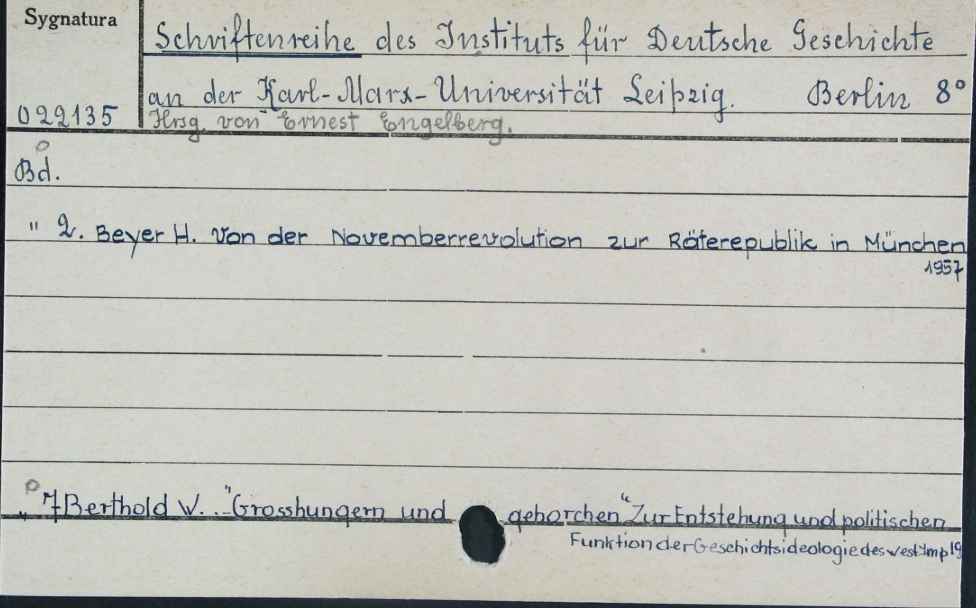 Sygnatura
Schriftenreihe des Instituts für Deutsche Geschichte
an der Karl-Marx-Universität Leipzig. Berlin 8°
022135
Hrsg. von Ernest Engelberg.
Bd.
" 2. Beyer H. Von der Novemberrevolution zur Räterepublik in München
1957
" 7 Berthold W. .. "Grosshungern und gehorchen" Zur Entstehung und politischen
Funktion der Geschichtsideologie des west. Imp 19